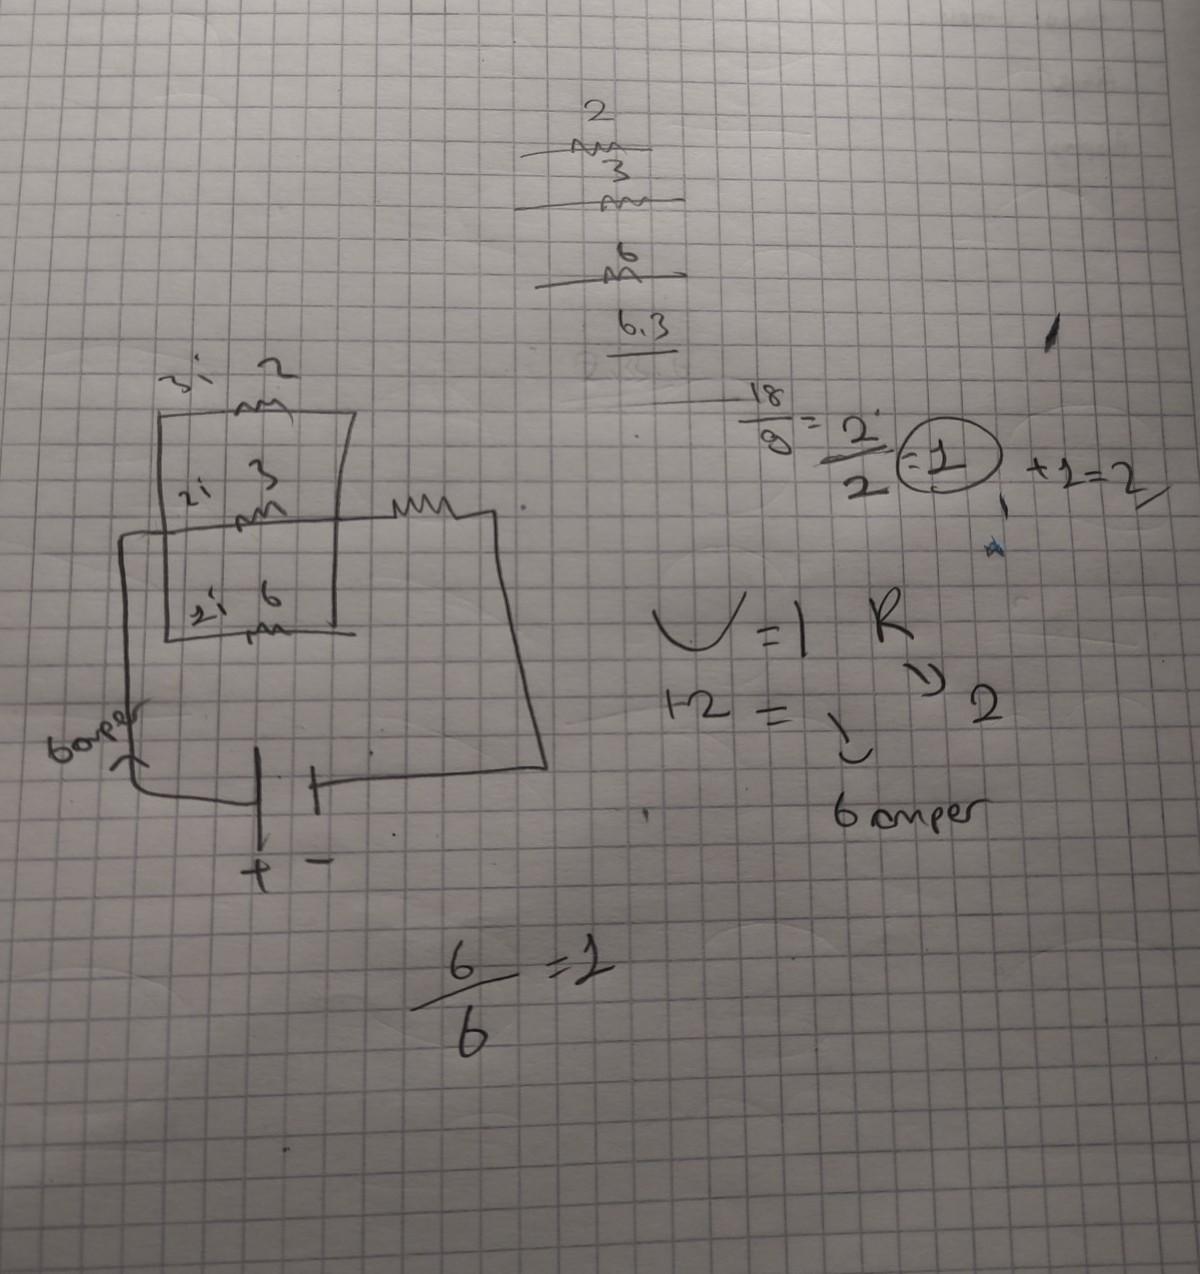 2
3
6
6.3
18/9 = 2/2 = 1 +1=2
3i 2
2i 3
2i 6
6 amper
+ -
V = I R
12 = 2
6 amper
6/6 = 1